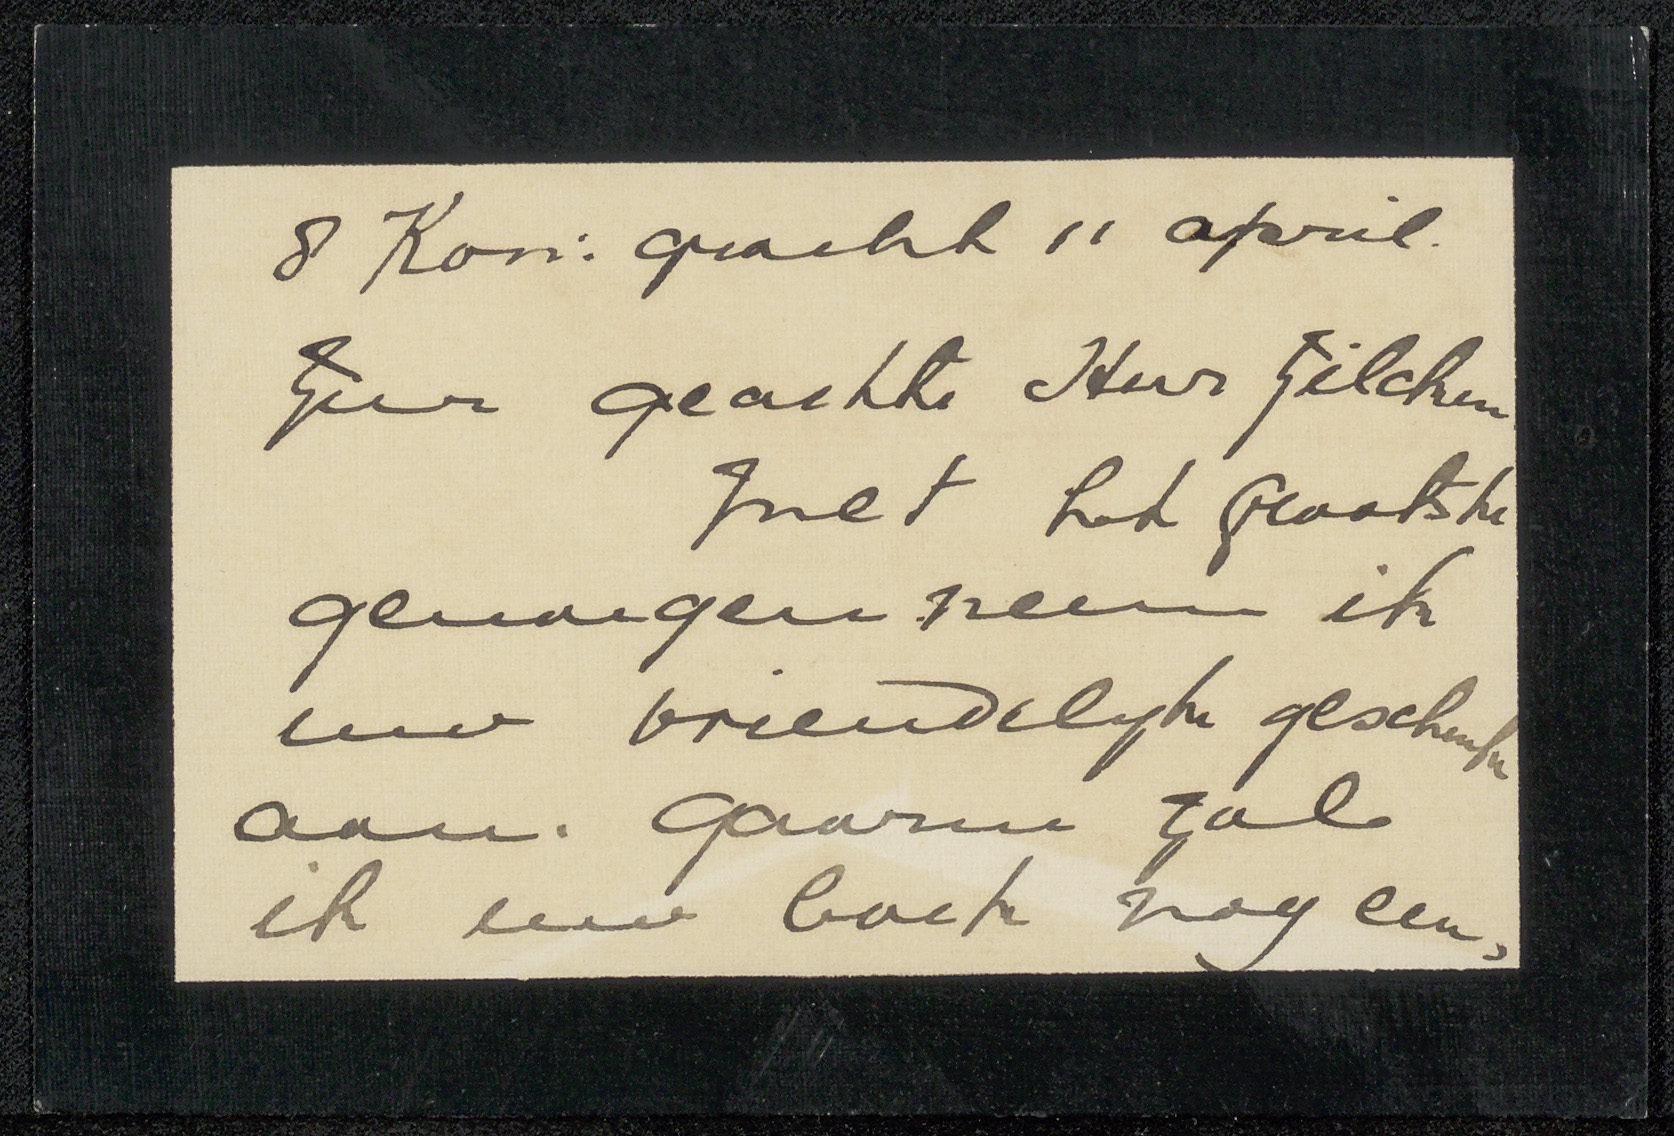 8 Kon: gracht 11 april.
Zeer geachte Heer Zilcken
Met het grootste
genoegen neem ik
uw vriendelijk geschenk
aan. Gaarne zal
ik uw boek nog een,